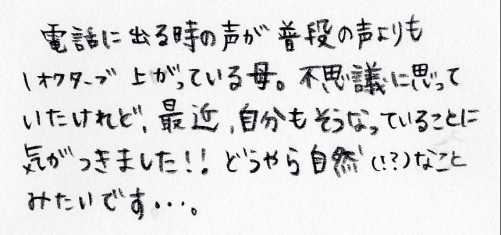 電話に出る時の声が普段の声よりも
1オクターブ上がっている母。不思議に思って
いたけれど、最近、自分もそうなっていることに
気がつきました!!どうやら自然(!?)なこと
みたいです・・・。